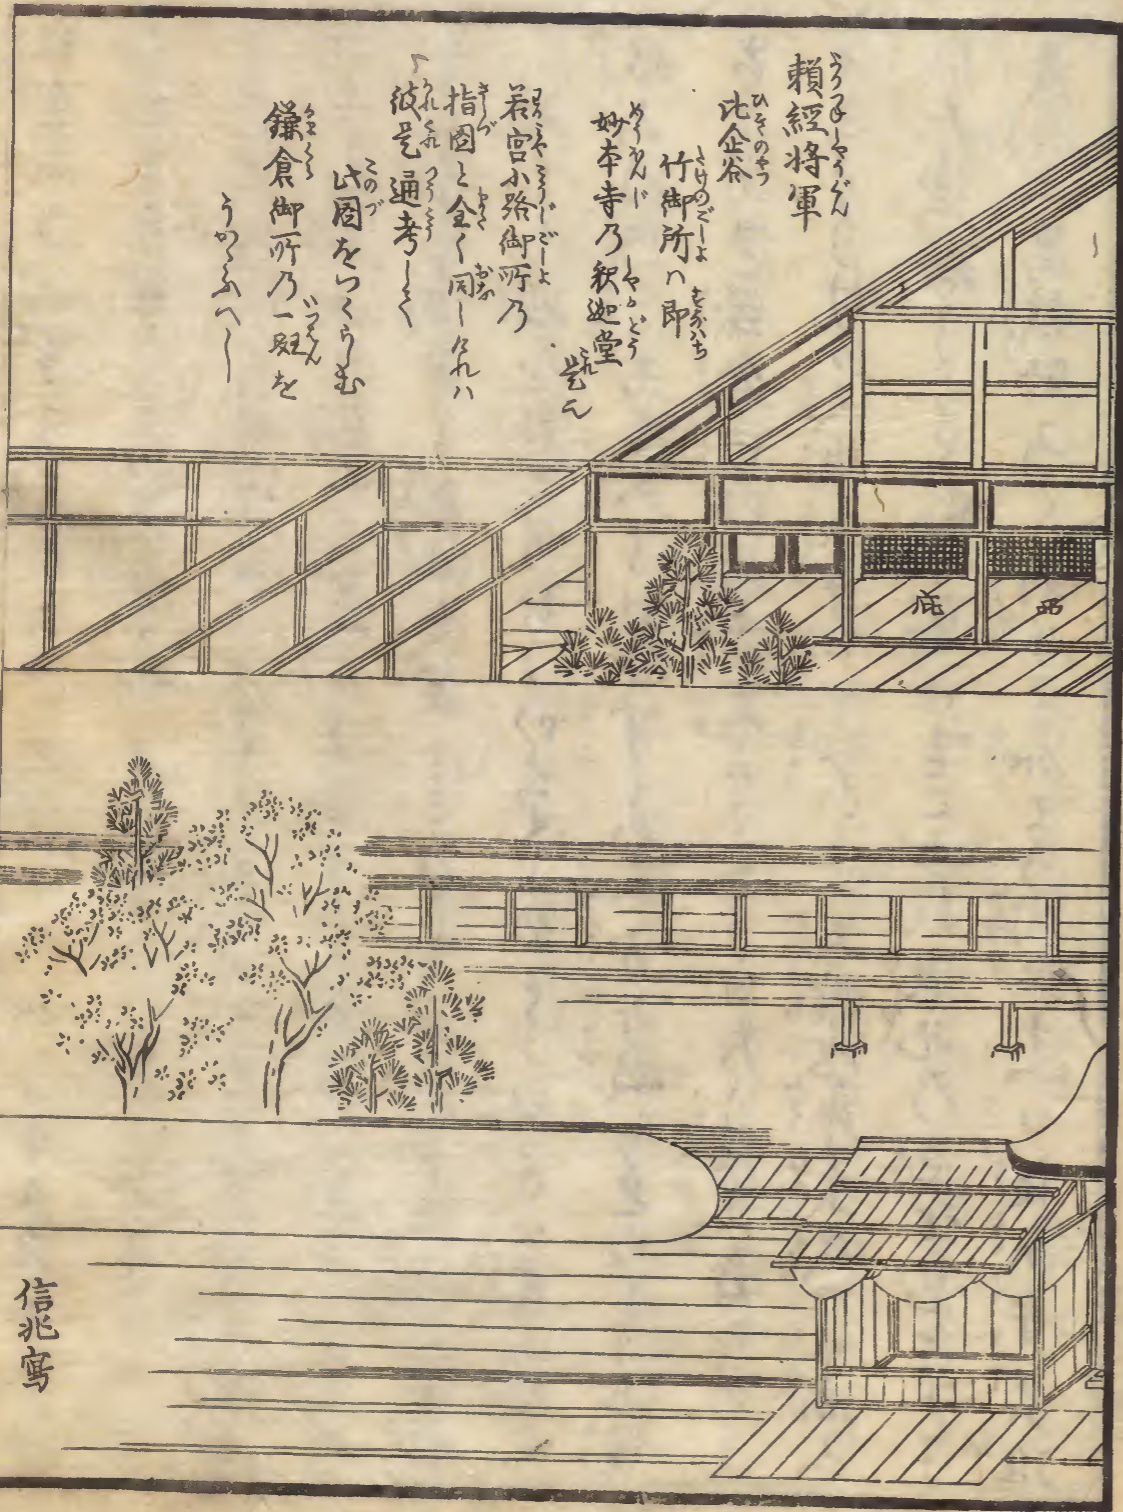 頼經将軍
比企谷
竹御所ハ即
妙本寺乃釈迦堂
是也
若宮小路御所乃
指圖と全く同しけれハ
彼是通考して
此圖をつくらしむ
鎌倉御所乃一斑を
うかゝふへし
西
庇
信兆寫